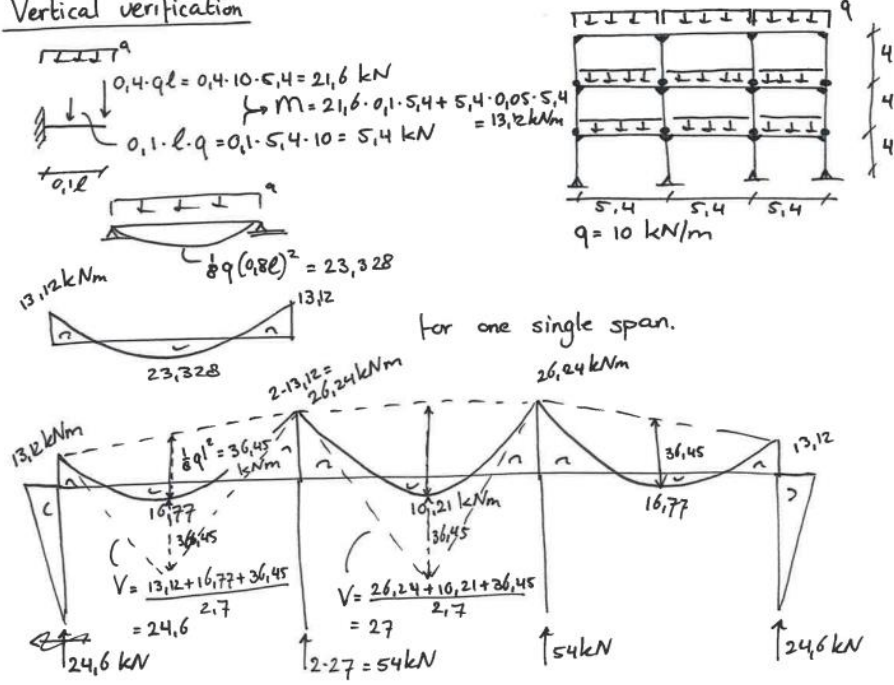 Vertical verification
q
0,4·ql = 0,4·10·5,4 = 21,6 kN
M = 21,6·0,1·5,4 + 5,4·0,05·5,4
= 13,12 kNm
0,1·l·q = 0,1·5,4·10 = 5,4 kN
0,1l
q
4
4
4
5,4 5,4 5,4
q = 10 kN/m
q
1/8 q (0,8l)² = 23,328
13,12 kNm
13,12
23,328
For one single span.
2·13,12 =
26,24 kNm
26,24 kNm
13,12 kNm
1/8 ql² = 36,45
kNm
36,45
13,12
16,77
10,21 kNm
16,77
36,45
36,45
V = (13,12 + 16,77 + 36,45) / 2,7
= 24,6
V = (26,24 + 10,21 + 36,45) / 2,7
= 27
24,6 kN
2·27 = 54 kN
54 kN
24,6 kN